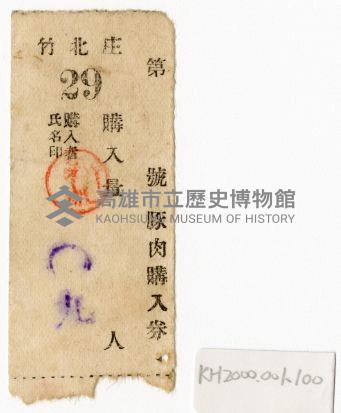 竹北庄
29
第　號豚肉購入券
購入量　人
購入者
氏名印
〇九
高雄市立歷史博物館
KAOHSIUNG MUSEUM OF HISTORY
KH2000.001.100